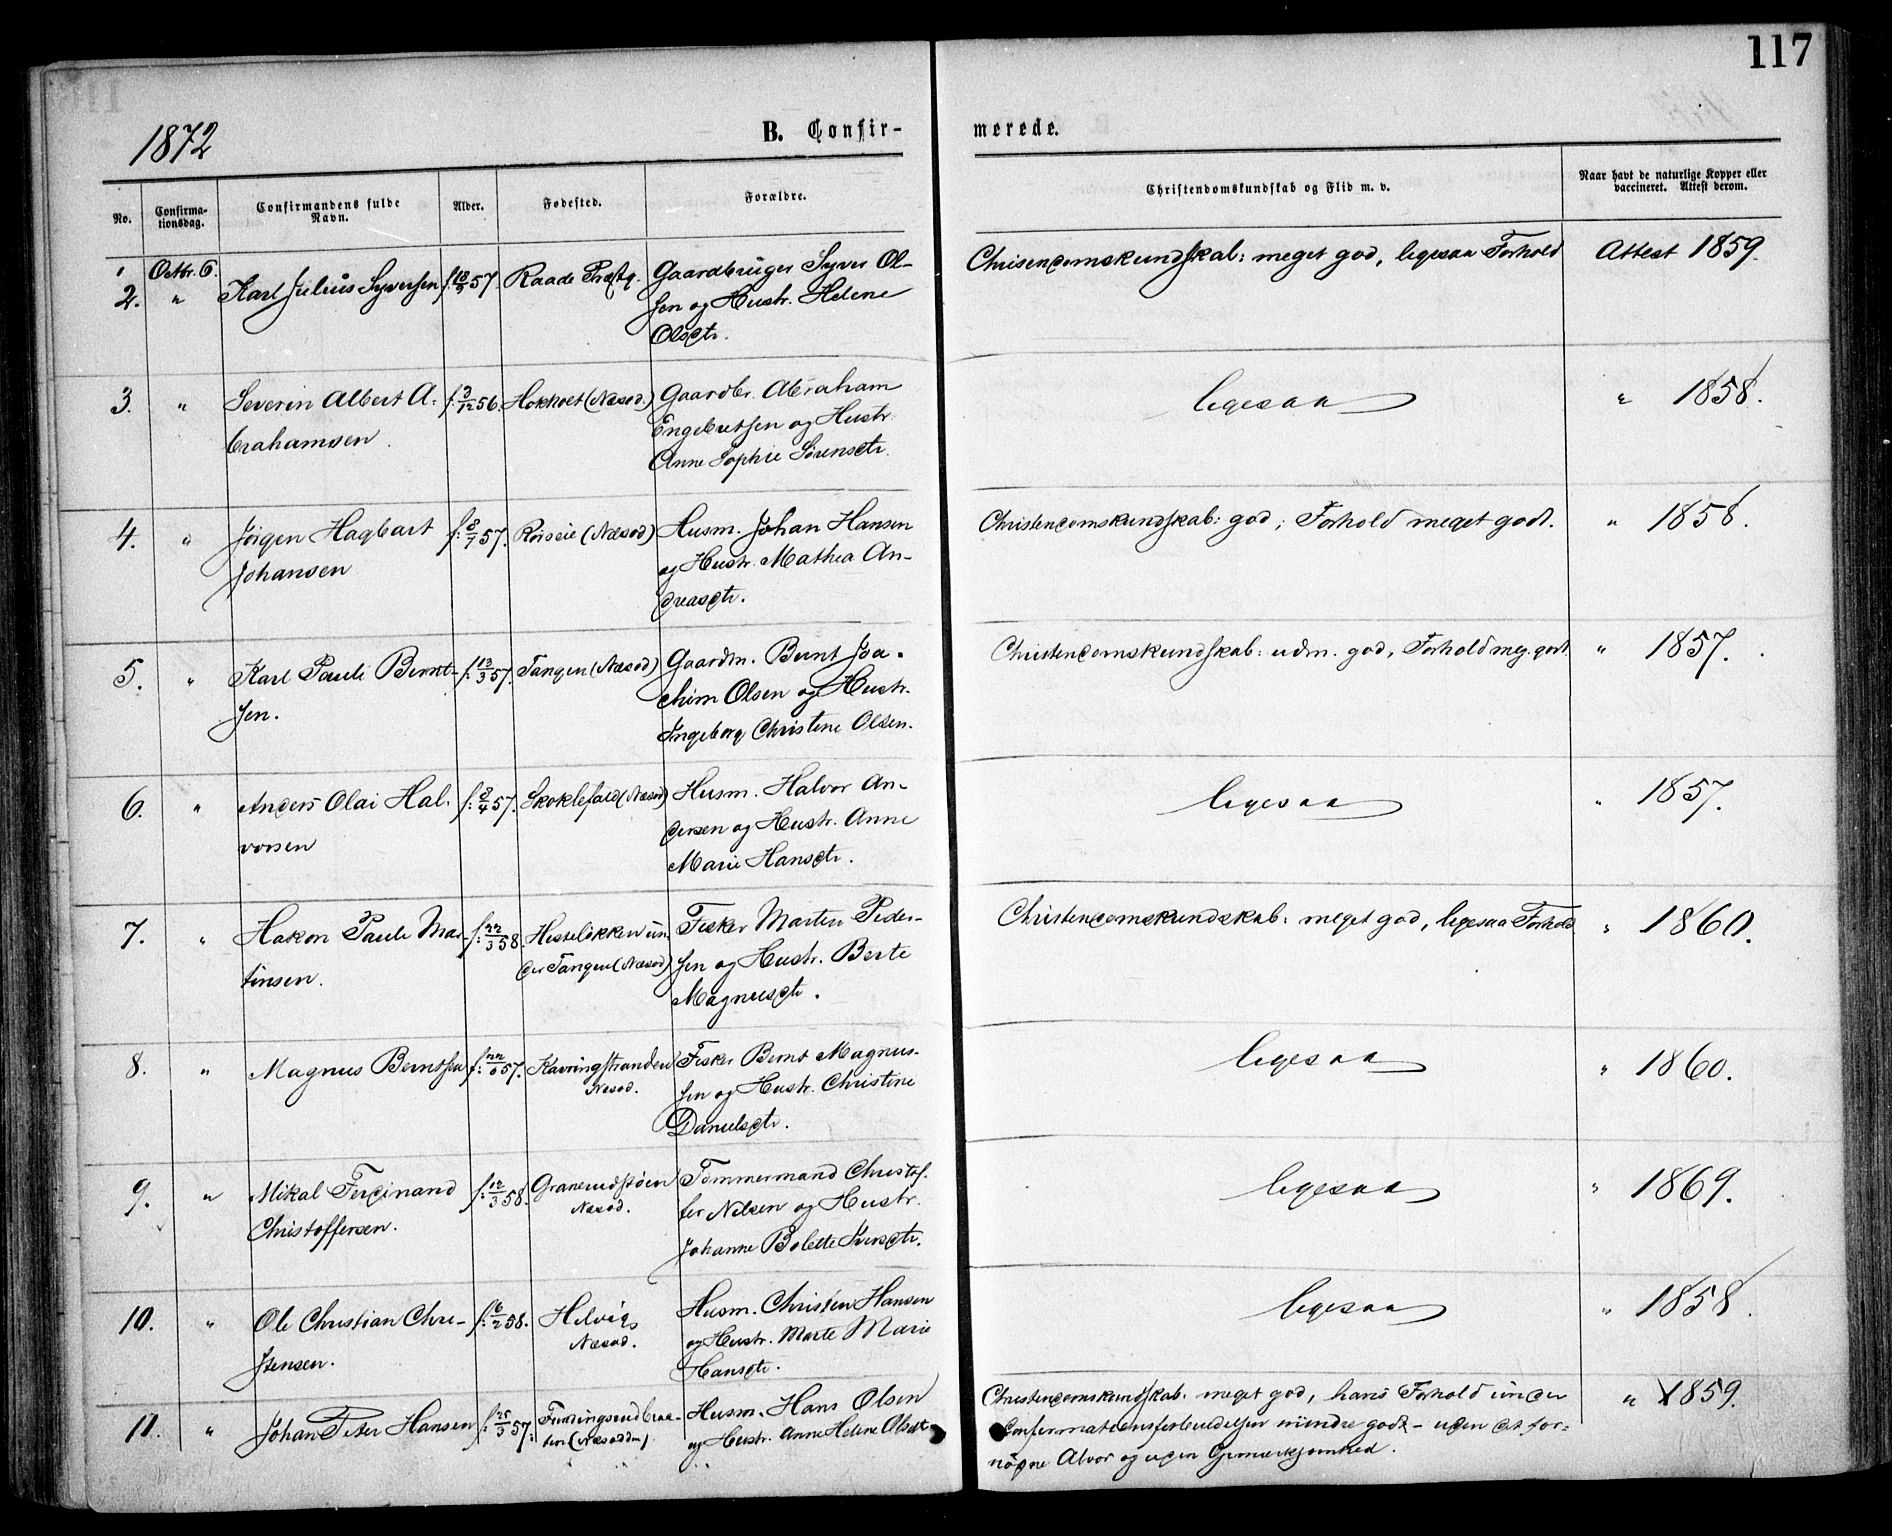 117
1872
B. Confir-
merede.
No.
Confirma-
tionsdag.
Confirmandens fulde
Navn.
Alder.
Fødested.
Forældre.
Christendomskundskab og Flid m. v.
Naar havt de naturlige Kopper eller
vaccineret. Attest derom.
Octbr. 6.
2. " Karl Julius Syversen Raade Præstg. Gaardbruger Syver Ol-
sen og Hustr. Helene
Olsdtr.
Chrisendomskundskab: meget god, ligesaa Forhold Attest 1859.
3. " Severin Albert A- f. 3/12 56. (Næsod.) Gaardbr. Abraham
brahamsen Engebretsen og Hustr.
Anne Sophie Sørensdtr.
ligesaa " 1858.
4. " Jørgen Hagbart f. 8/7 57. (Næsod) Husm. Johan Hansen
Johansen og Hustr. Mathea An-
dreasdtr.
Christendomskundskab: god; Forhold meget godt. " 1858.
5. " Karl Pauli Bernt- f. 13/3 57. Tangen (Næsod) Gaardm. Bernt Joa-
sen. chim Olsen og Hustr.
Ingeborg Christine Olsen.
Christendomskundskab: udm. god, Forhold meg. godt. " 1857.
6. " Anders Olai Hal- f. 8/4 57. Skoklefald (Næsod) Husm. Halvor An-
vorsen dersen og Hustr. Anne
Marie Hansdtr.
ligesaa " 1857.
7. " Hakon Pauli Mar- f. 22/3 58. Hesteløkken un- Fisker Marten Peder-
tinsen. der Tangen (Næsod) sen og Hustr. Berte
Magnusdtr.
Christendomskundskab: meget god, ligesaa Forhold " 1860.
8. " Magnus Berntsen Kavringstranden Fisker Bernt Magnus-
Næsod. sen og Hustr. Christine
Danielsdtr.
ligesaa " 1860.
9. " Mikal Ferdinand f. 12/3 58. Granerudstøen Tømmermand Christof-
Christoffersen. Næsod. fer Nilsen og Hustr.
Johanne Bolette Iversdtr.
ligesaa " 1869.
10. " Ole Christian Chri- f. 6/2 58. Helvig Husm. Christen Hansen
stensen. Næsod. og Hustr. Marte Marie
Hansdtr.
ligesaa " 1858.
11. " Johan Peter Hansen f. 25/3 57. Husm. Hans Olsen
(Næsodd) og Hustr. Anne Helene Olsdtr
Christendomskundskab: meget god, hans Forhold under " 1859.
Confirmationsforberedelsen mindre godt - uden det for-
nødne Alvor og uden Opmærksomhed.